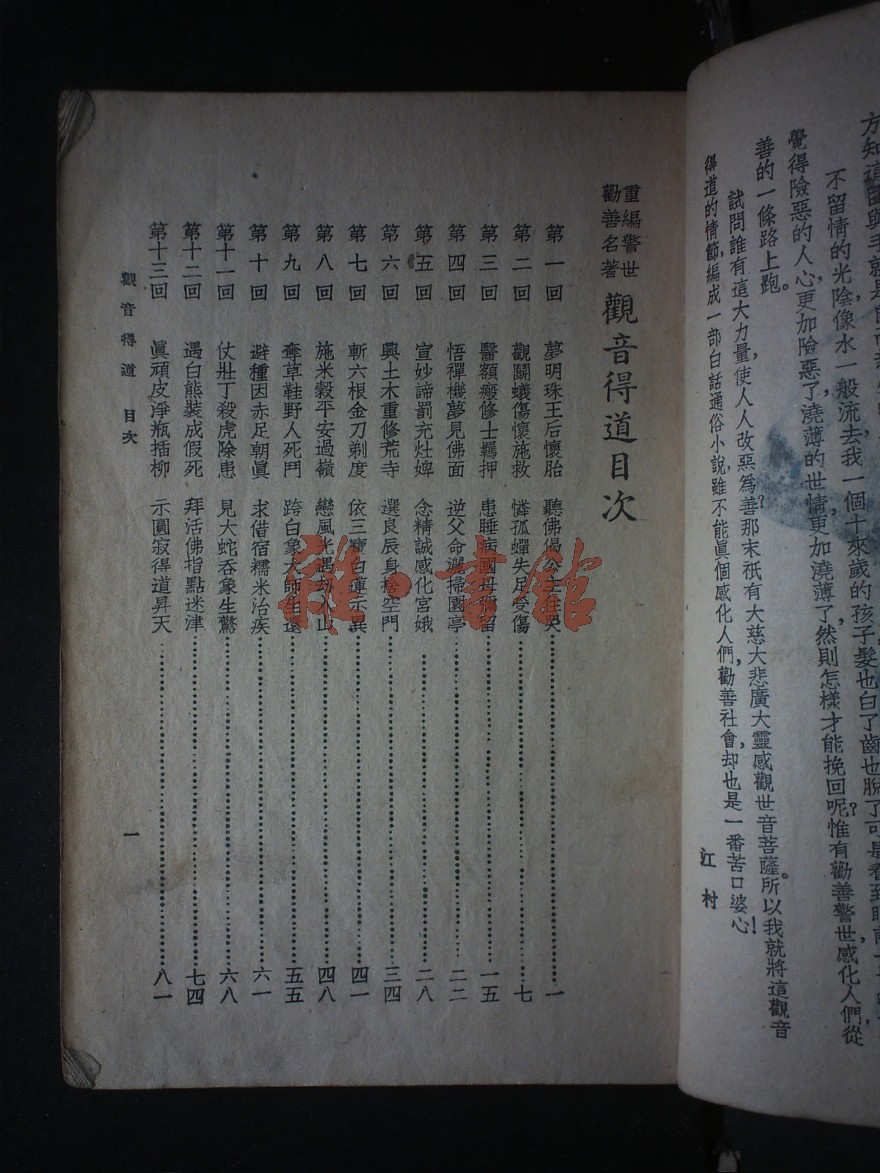 不留情的光陰像水一般流去我一個十來歲的孩子髮也白了齒也脫了可是看到眼前
覺得險惡的人心更加險惡了，澆薄的世情更加澆薄了然則怎樣才能挽回呢？惟有勸善警世感化人們從
善的一條路上跑。
試問誰有這大力量，使人人改惡為善？那末祇有大慈大悲廣大靈感觀世音菩薩。所以我就將這觀音
得道的情節，編成一部白話通俗小說，雖不能眞個感化人們，勸善社會，却也是一番苦口婆心！
江村
重編警世
勸善名著
觀音得道目次
第一回 夢明珠王后懷胎 聽佛偈公主住哭 一
第二回 觀鬭蟻傷懷施救 憐孤蟬失足受傷 七
第三回 醫額瘢修士羈押 患睡病國母彌留 一五
第四回 悟禪機夢見佛面 逆父命灑掃園亭 二二
第五回 宣妙諦罰充灶婢 念精誠感化宮娥 二八
第六回 興土木重修荒寺 選良辰身捨空門 三四
第七回 斬六根金刀剃度 依三寶白蓮示異 四一
第八回 施米穀平安過嶺 戀風光遇刼入山 四八
第九回 奪草鞋野人死鬥 跨白象大師生還 五五
第十回 避種因赤足朝眞 求借宿糯米治疾 六一
第十一回 仗壯丁殺虎除患 見大蛇吞象生驚 六八
第十二回 遇白熊裝成假死 拜活佛指點迷津 七四
第十三回 眞頑皮淨瓶插柳 示圓寂得道昇天 八一
觀音得道 目次
一
雜·書館